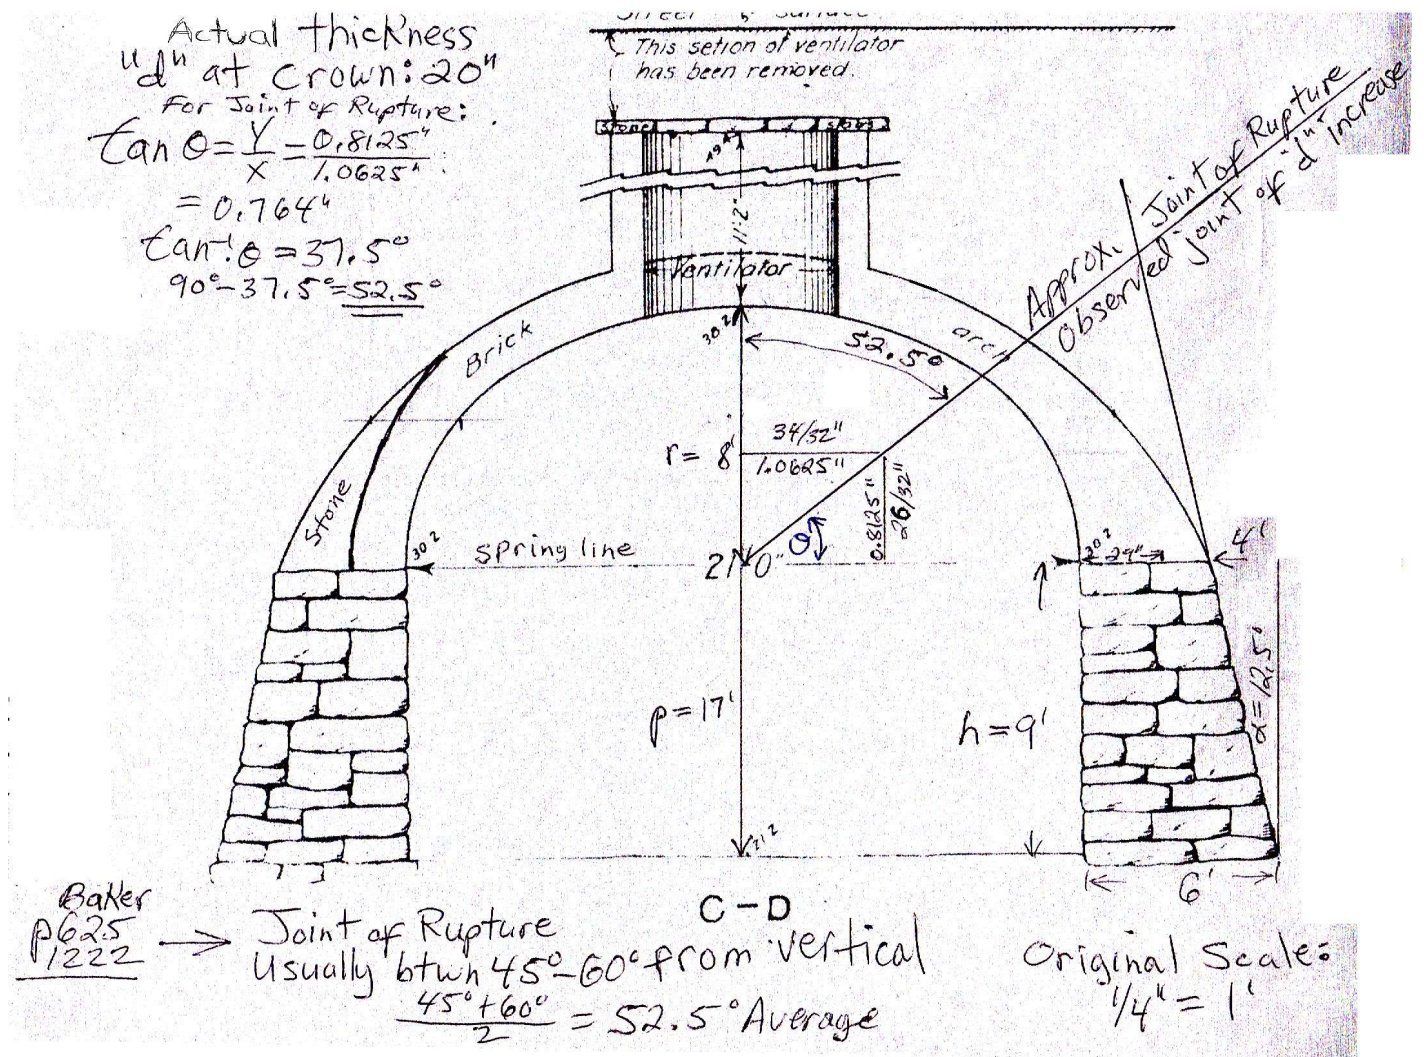 Actual thickness
"d" at Crown: 20"
For Joint of Rupture:
tan θ = Y/X = 0.8125"/1.0625"
= 0.764"
tan⁻¹ θ = 37.5°
90° - 37.5° = 52.5°
Street Surface
This setion of ventilator
has been removed.
stone slabs
11'2"
Ventilator
Brick
arch
Stone
30.2
52.5°
Approx. Joint of Rupture
Observed joint of "d" increase
r = 8'
34/32"
1.0625"
0.8125"
26/32"
θ
30.2
spring line
21'0"
30.2
24"
4'
α = 12.5°
p = 17'
h = 9'
21.2
6'
C-D
Baker
p625
1222
Joint of Rupture
Usually btwn 45°-60° from vertical
45°+60°/2 = 52.5° Average
Original Scale:
1/4" = 1'